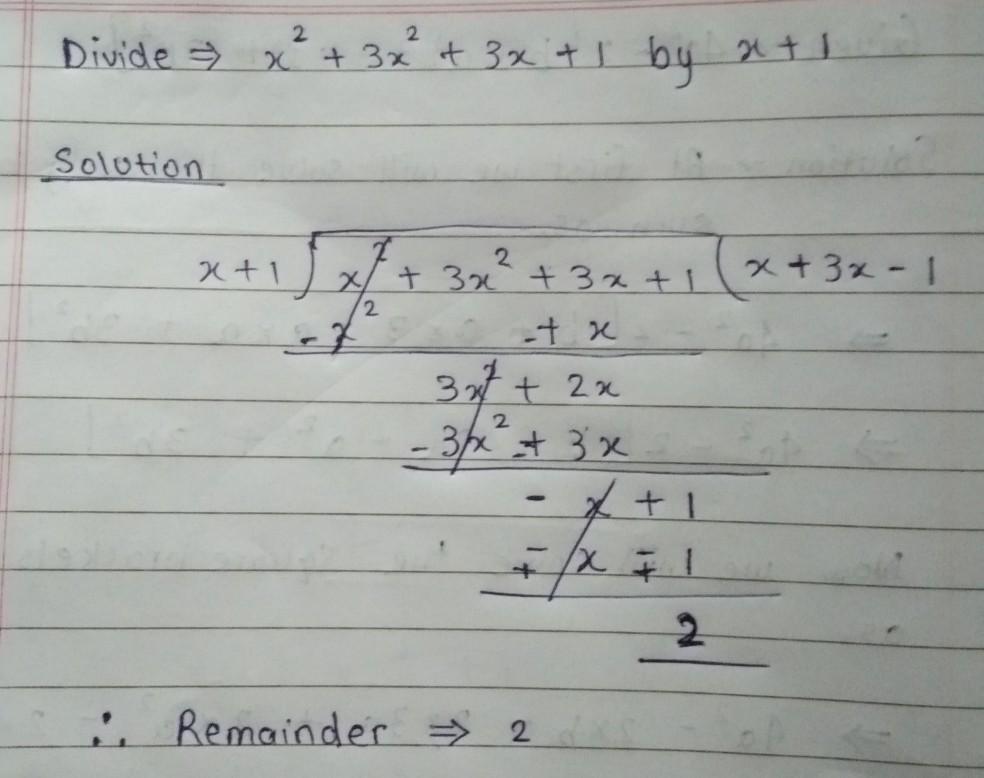 Divide ⇒ x² + 3x² + 3x + 1 by x + 1
Solution
x + 1 ) x² + 3x² + 3x + 1 ( x + 3x - 1
- x² -+ x
3x² + 2x
- 3x² -+ 3x
- x + 1
∓ x ∓ 1
2
∴ Remainder ⇒ 2